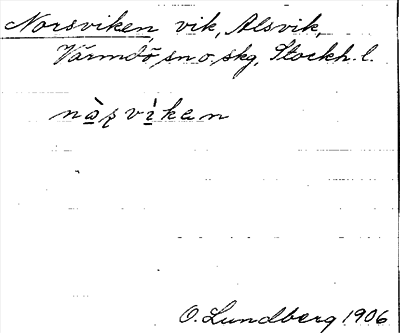 Norsviken, vik, Alsvik,
Värmdö sn o. skg, Stockh. l.
nàʂvìken
O. Lundberg 1906